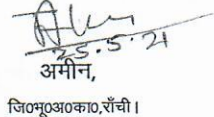 25.5.21
अमीन,
जि०भू०अ०का०,राँची।